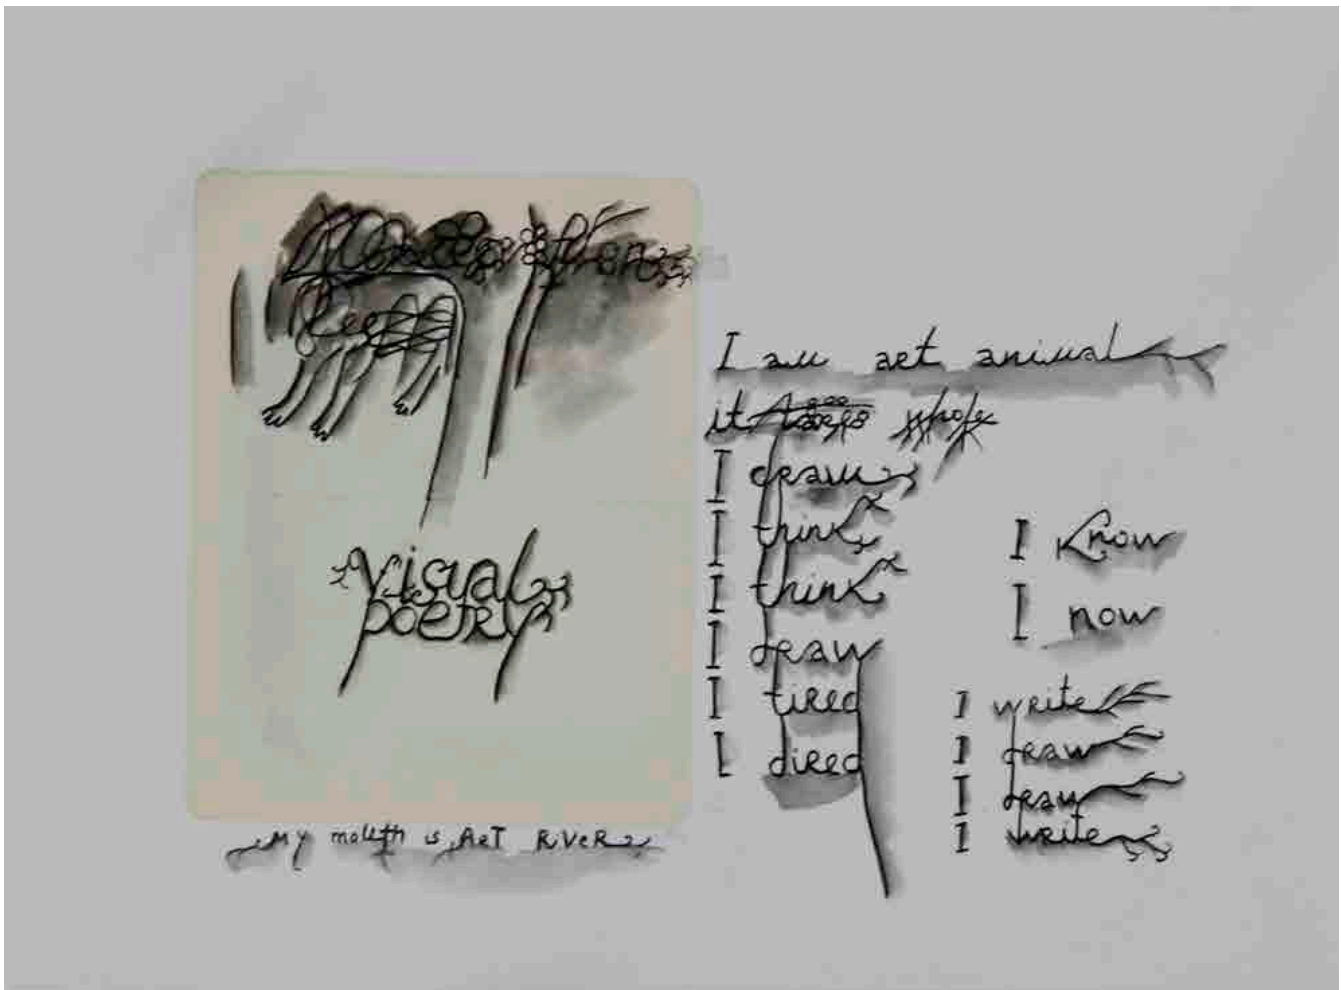 visual
poetry
My mouth is ART RiVeR
I am art animal
it
I draw
I think
I think
I draw
I tired
I dired
I know
I now
I write
I draw
I draw
I write